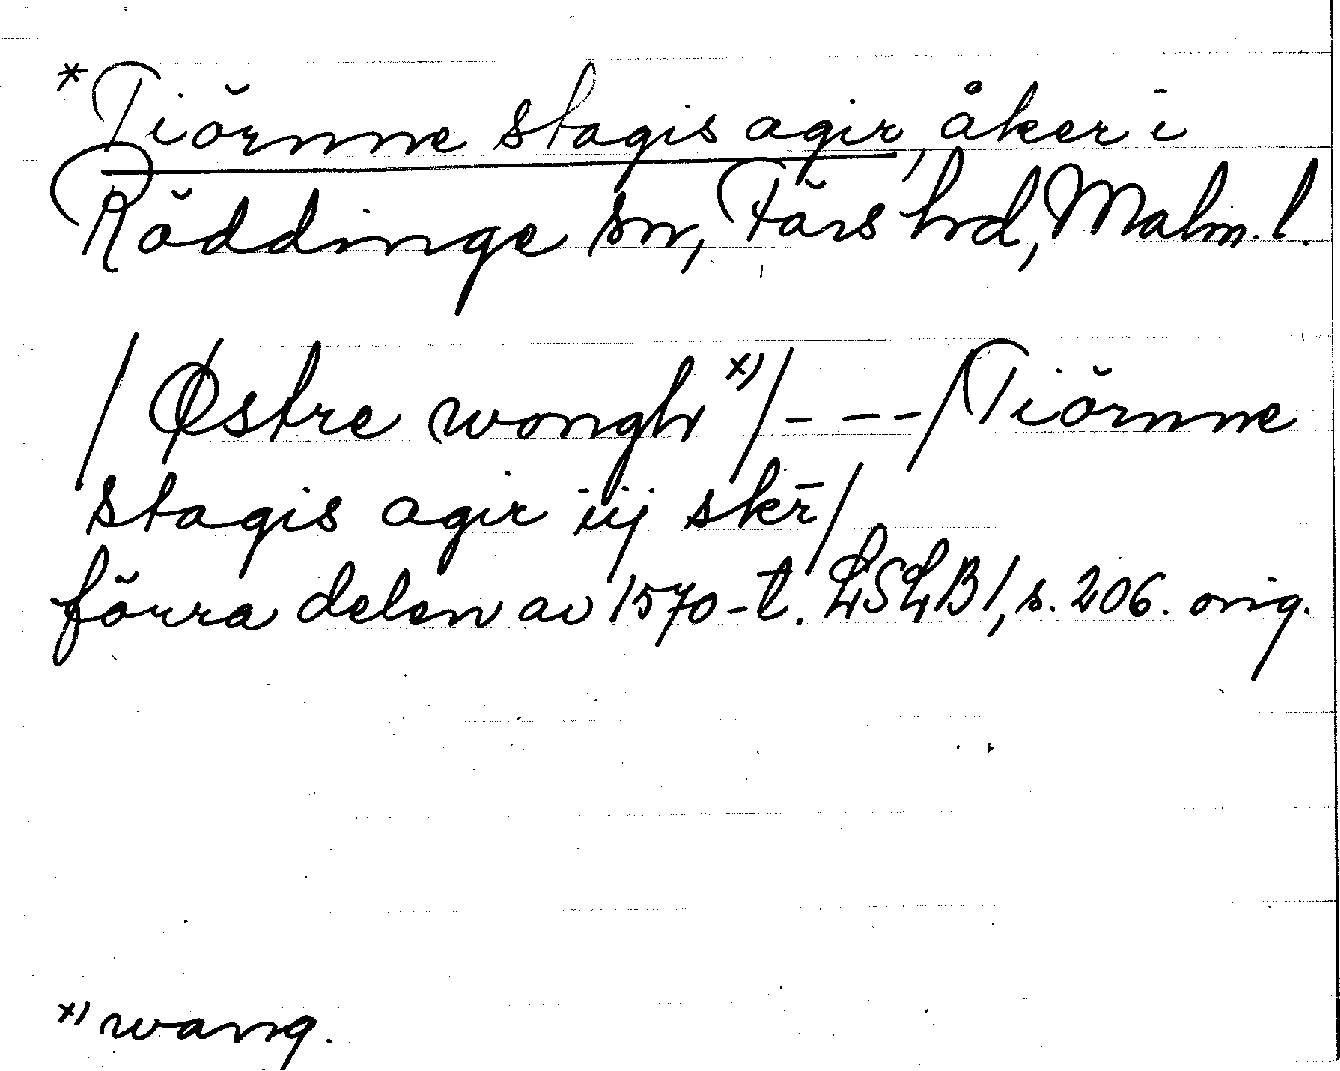 *Tiörnne stagis agir, åker i
Röddinge sn, Färs hrd, Malm. l.
/ Østre wongh x) / - - - / Tiörnne
stagis agir iij skr̄ /
förra delen av 1570-t. LSLB 1, s. 206. orig.
x) wang.